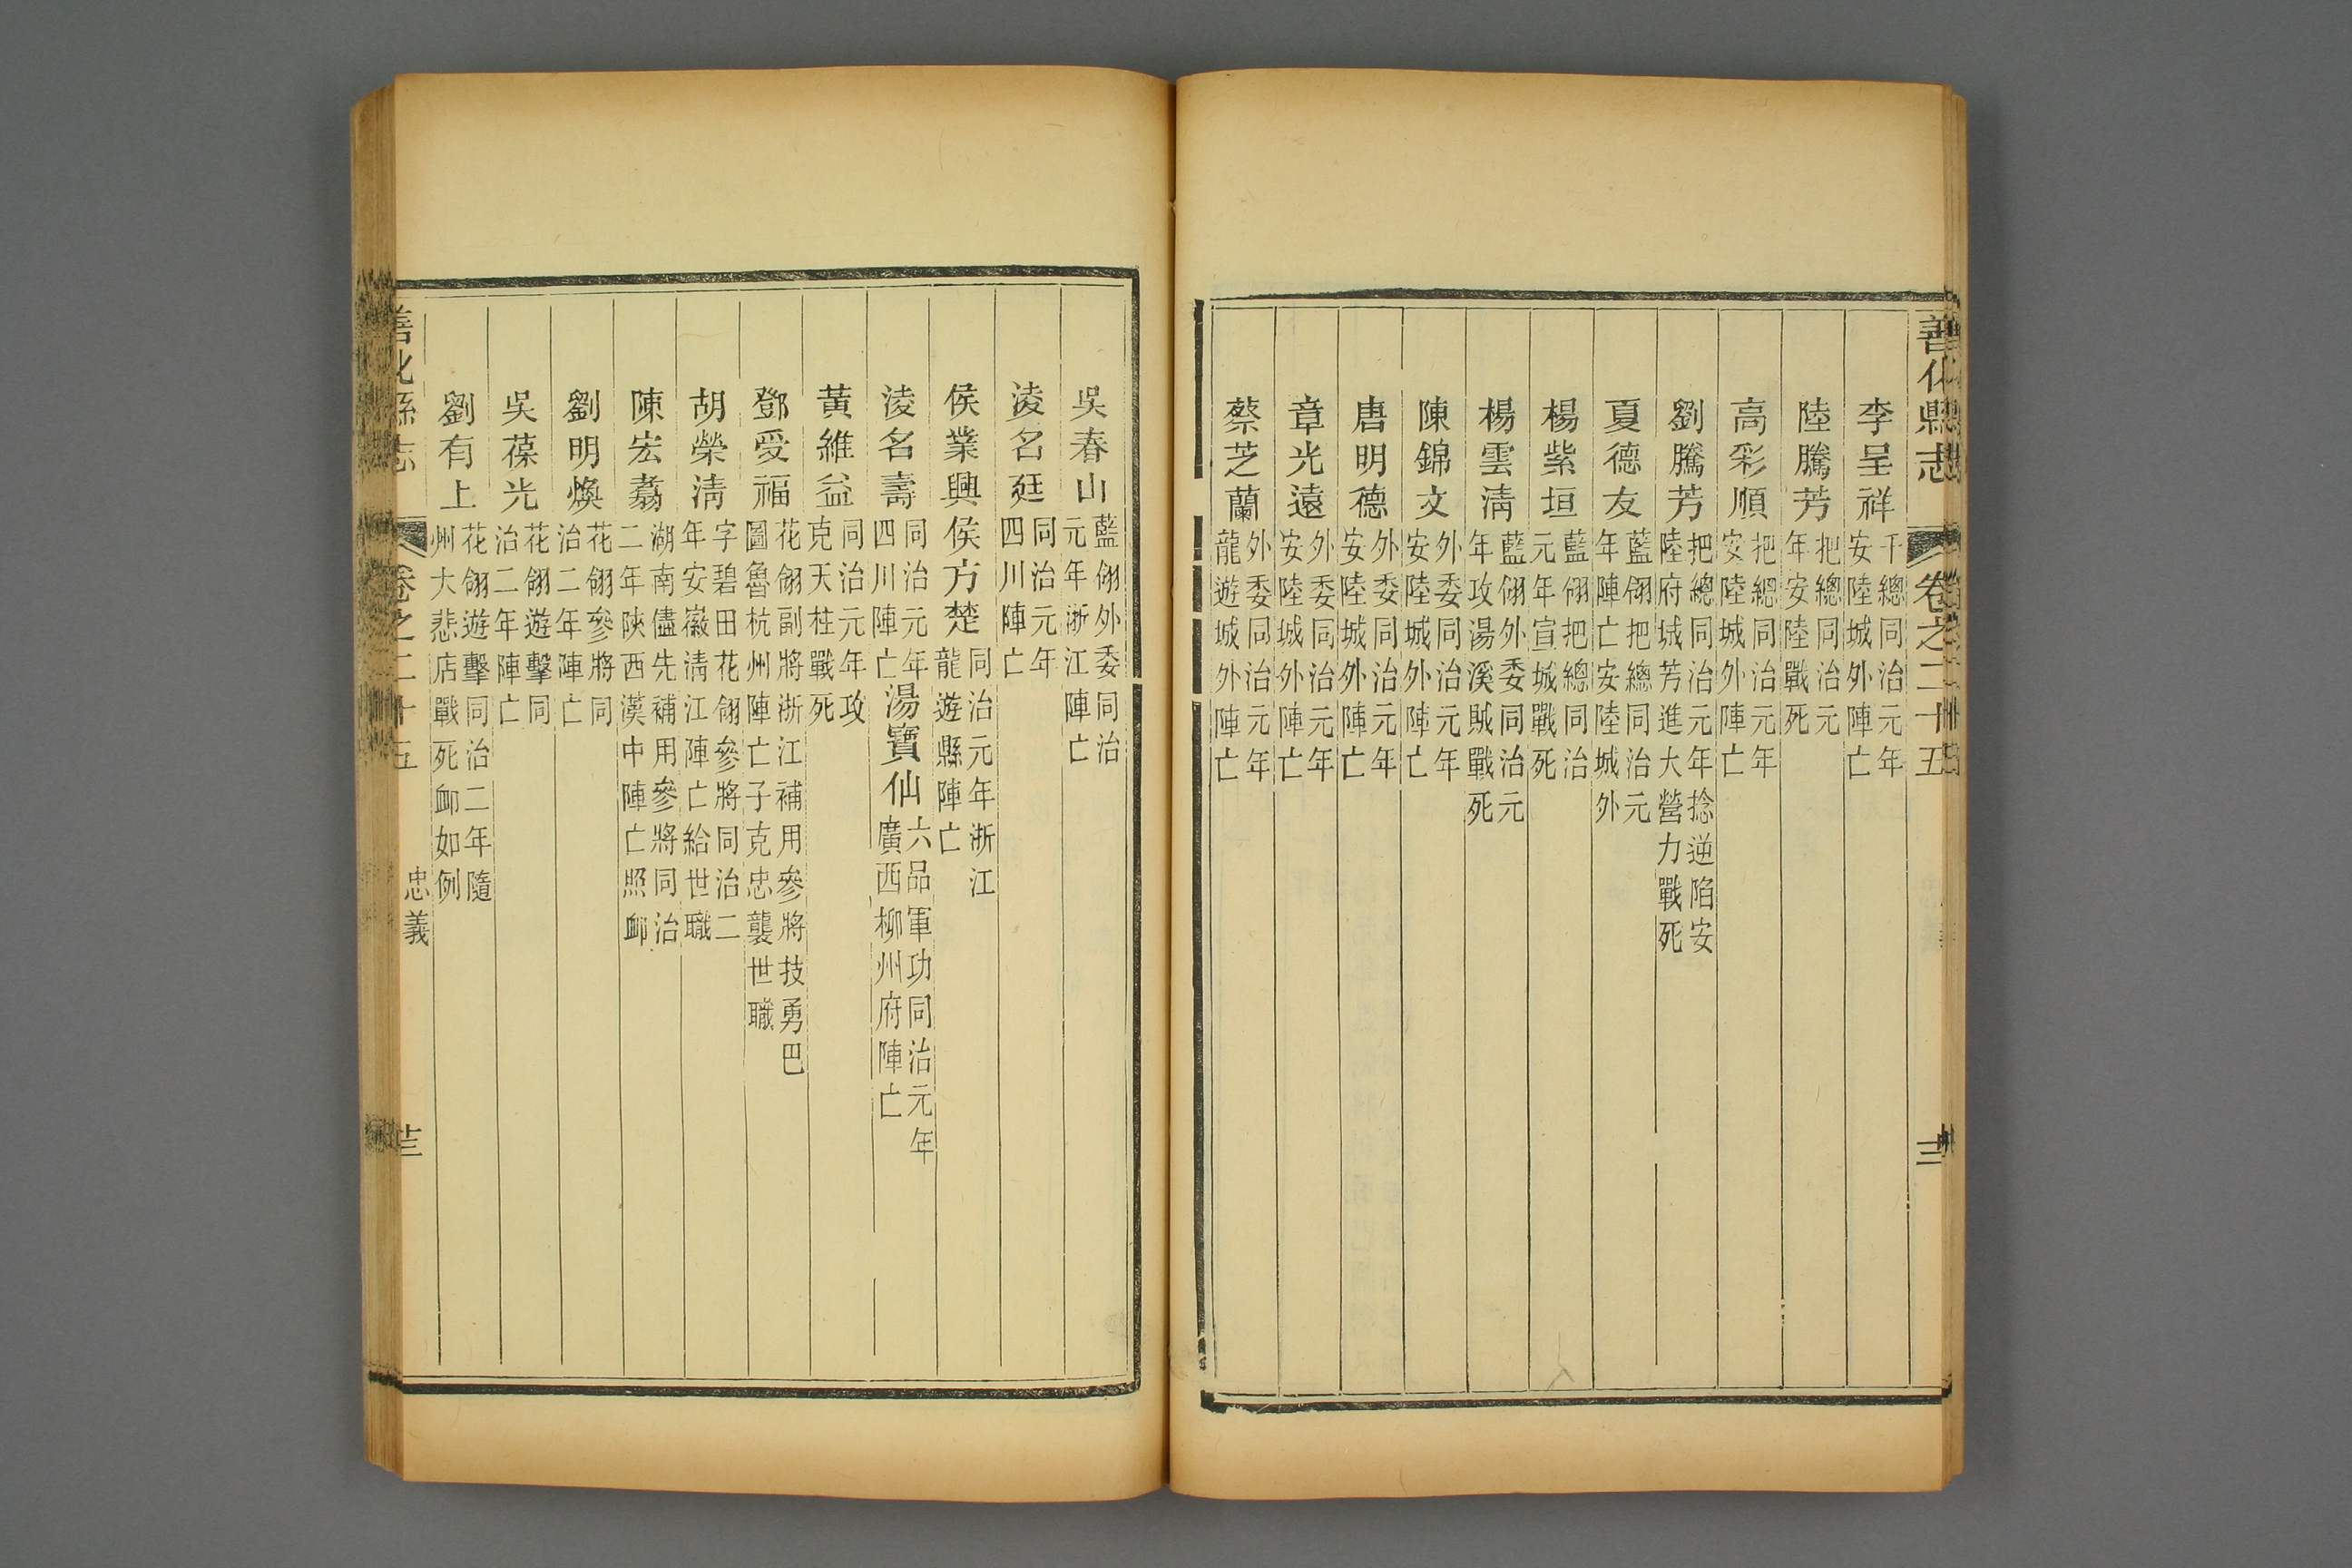 善化縣志 卷之二十五
李呈祥 千總同治元年安陸城外陣亡
陸騰芳 把總同治元年安陸戰死
高彩順 把總同治元年安陸城外陣亡
劉騰芳 把總同治元年捻逆陷安陸府城芳進大營力戰死
夏德友 藍翎把總同治元年陣亡安陸城外
楊紫垣 藍翎把總同治元年宣城戰死
楊雲淸 藍翎外委同治元年攻湯溪賊戰死
陳錦文 外委同治元年安陸城外陣亡
唐明德 外委同治元年安陸城外陣亡
章光遠 外委同治元年安陸城外陣亡
蔡芝蘭 外委同治元年龍遊城外陣亡
吳春山 藍翎外委同治元年浙江陣亡
淩名廷 同治元年四川陣亡
侯業興 侯方楚 同治元年浙江龍遊縣陣亡
淩名壽 同治元年四川陣亡 湯寶仙 六品軍功同治元年廣西柳州府陣亡
黃維益 同治元年攻克天柱戰死
鄧愛福 花翎副將浙江補用參將技勇巴圖魯杭州陣亡子克忠襲世職
胡榮淸 字碧田花翎參將同治二年安徽淸江陣亡給世職
陳宏翥 湖南儘先補用參將同治二年陝西漢中陣亡照卹
劉明煥 花翎參將同治二年陣亡
吳葆光 花翎遊擊同治二年陣亡
劉有上 花翎遊擊同治二年隨州大悲店戰死卹如例
善化縣志 卷之二十五 忠義